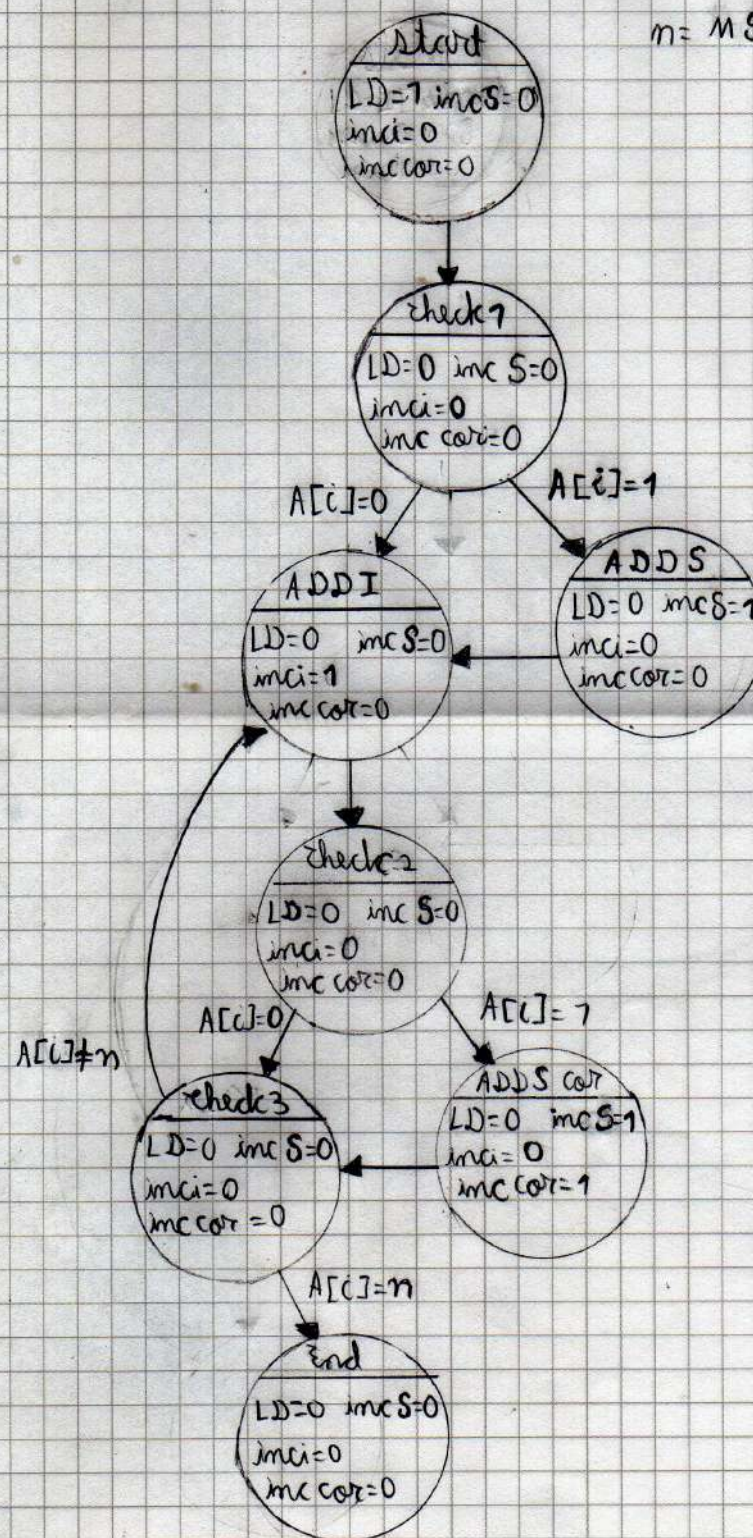 n= MS
start
LD=1 incS=0
inci=0
inccor=0
check1
LD=0 inc S=0
inci=0
inc cor=0
A[i]=0
A[i]=1
ADDI
LD=0 inc S=0
inci=1
inccor=0
ADDS
LD=0 incS=1
inci=0
inccor=0
check2
LD=0 inc S=0
inci=0
inc cor=0
A[i]=0
A[i]=1
A[i]≠n
check3
LD=0 inc S=0
inci=0
inc cor=0
ADDS cor
LD=0 incS=1
inci=0
inc cor=1
A[i]=n
End
LD=0 inc S=0
inci=0
inc cor=0